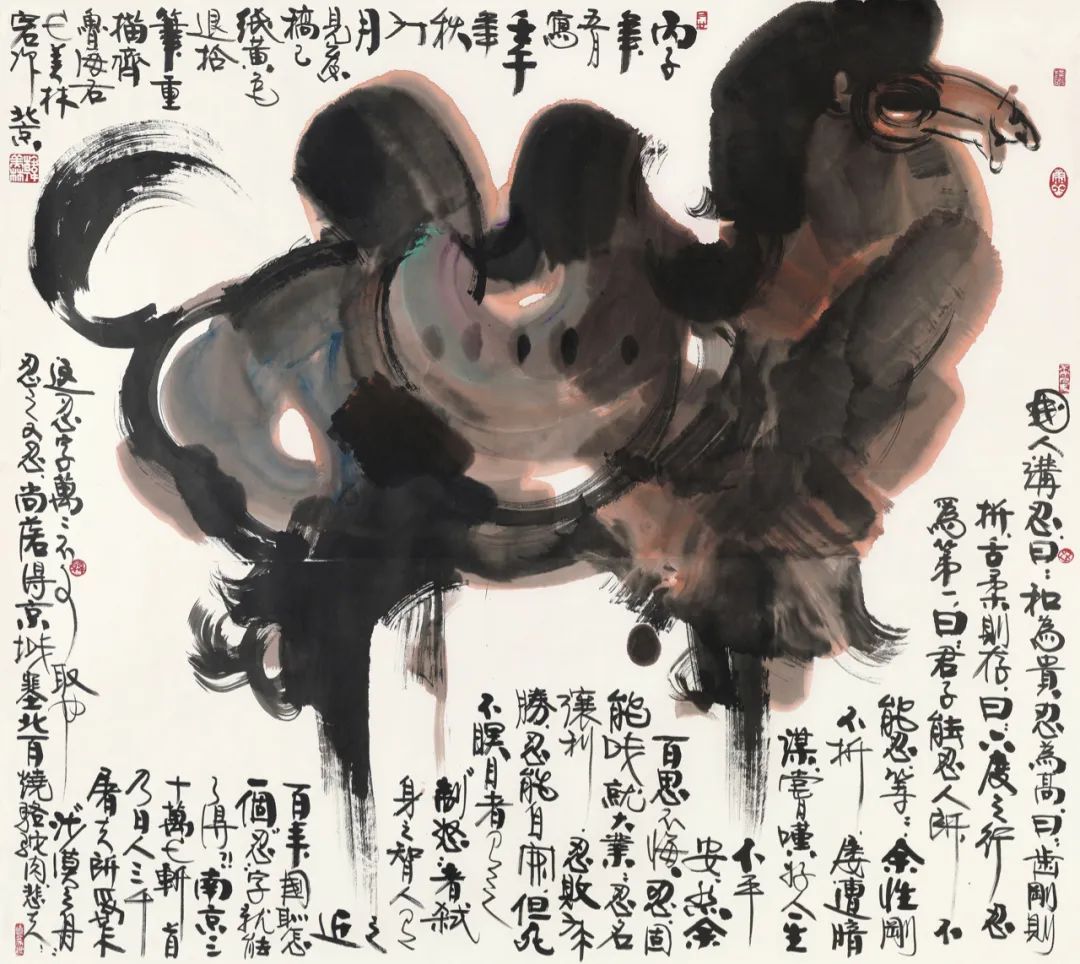 丙子
年
五月
寫
壬午
年
秋
八
月
見原
稿已
紙黃色
退拾
筆重
描齊
魯海右
美林
客作
北京
國人講忍曰:和為貴,忍為高,曰:齒剛則
折,舌柔則存,曰:六度之行 忍
為第一,曰:君子能忍人所 不
能忍等:余性剛
不折 屢遭暗
好人一生
不平
安 然余
百思不悔,忍固
能成就大業,忍名
讓利 忍敗不
勝,忍能自刎但死
不瞑目者
制怒者弒
身之智人
近之
百年國恥怎
一個忍字就能
了得?!南京三
十萬亡 首
乃日人三千
屠刀所為
沙漠之舟
忍之又忍,尚落得京城塞北百燒駱駝肉悲夫!
這忍字萬萬不可取也